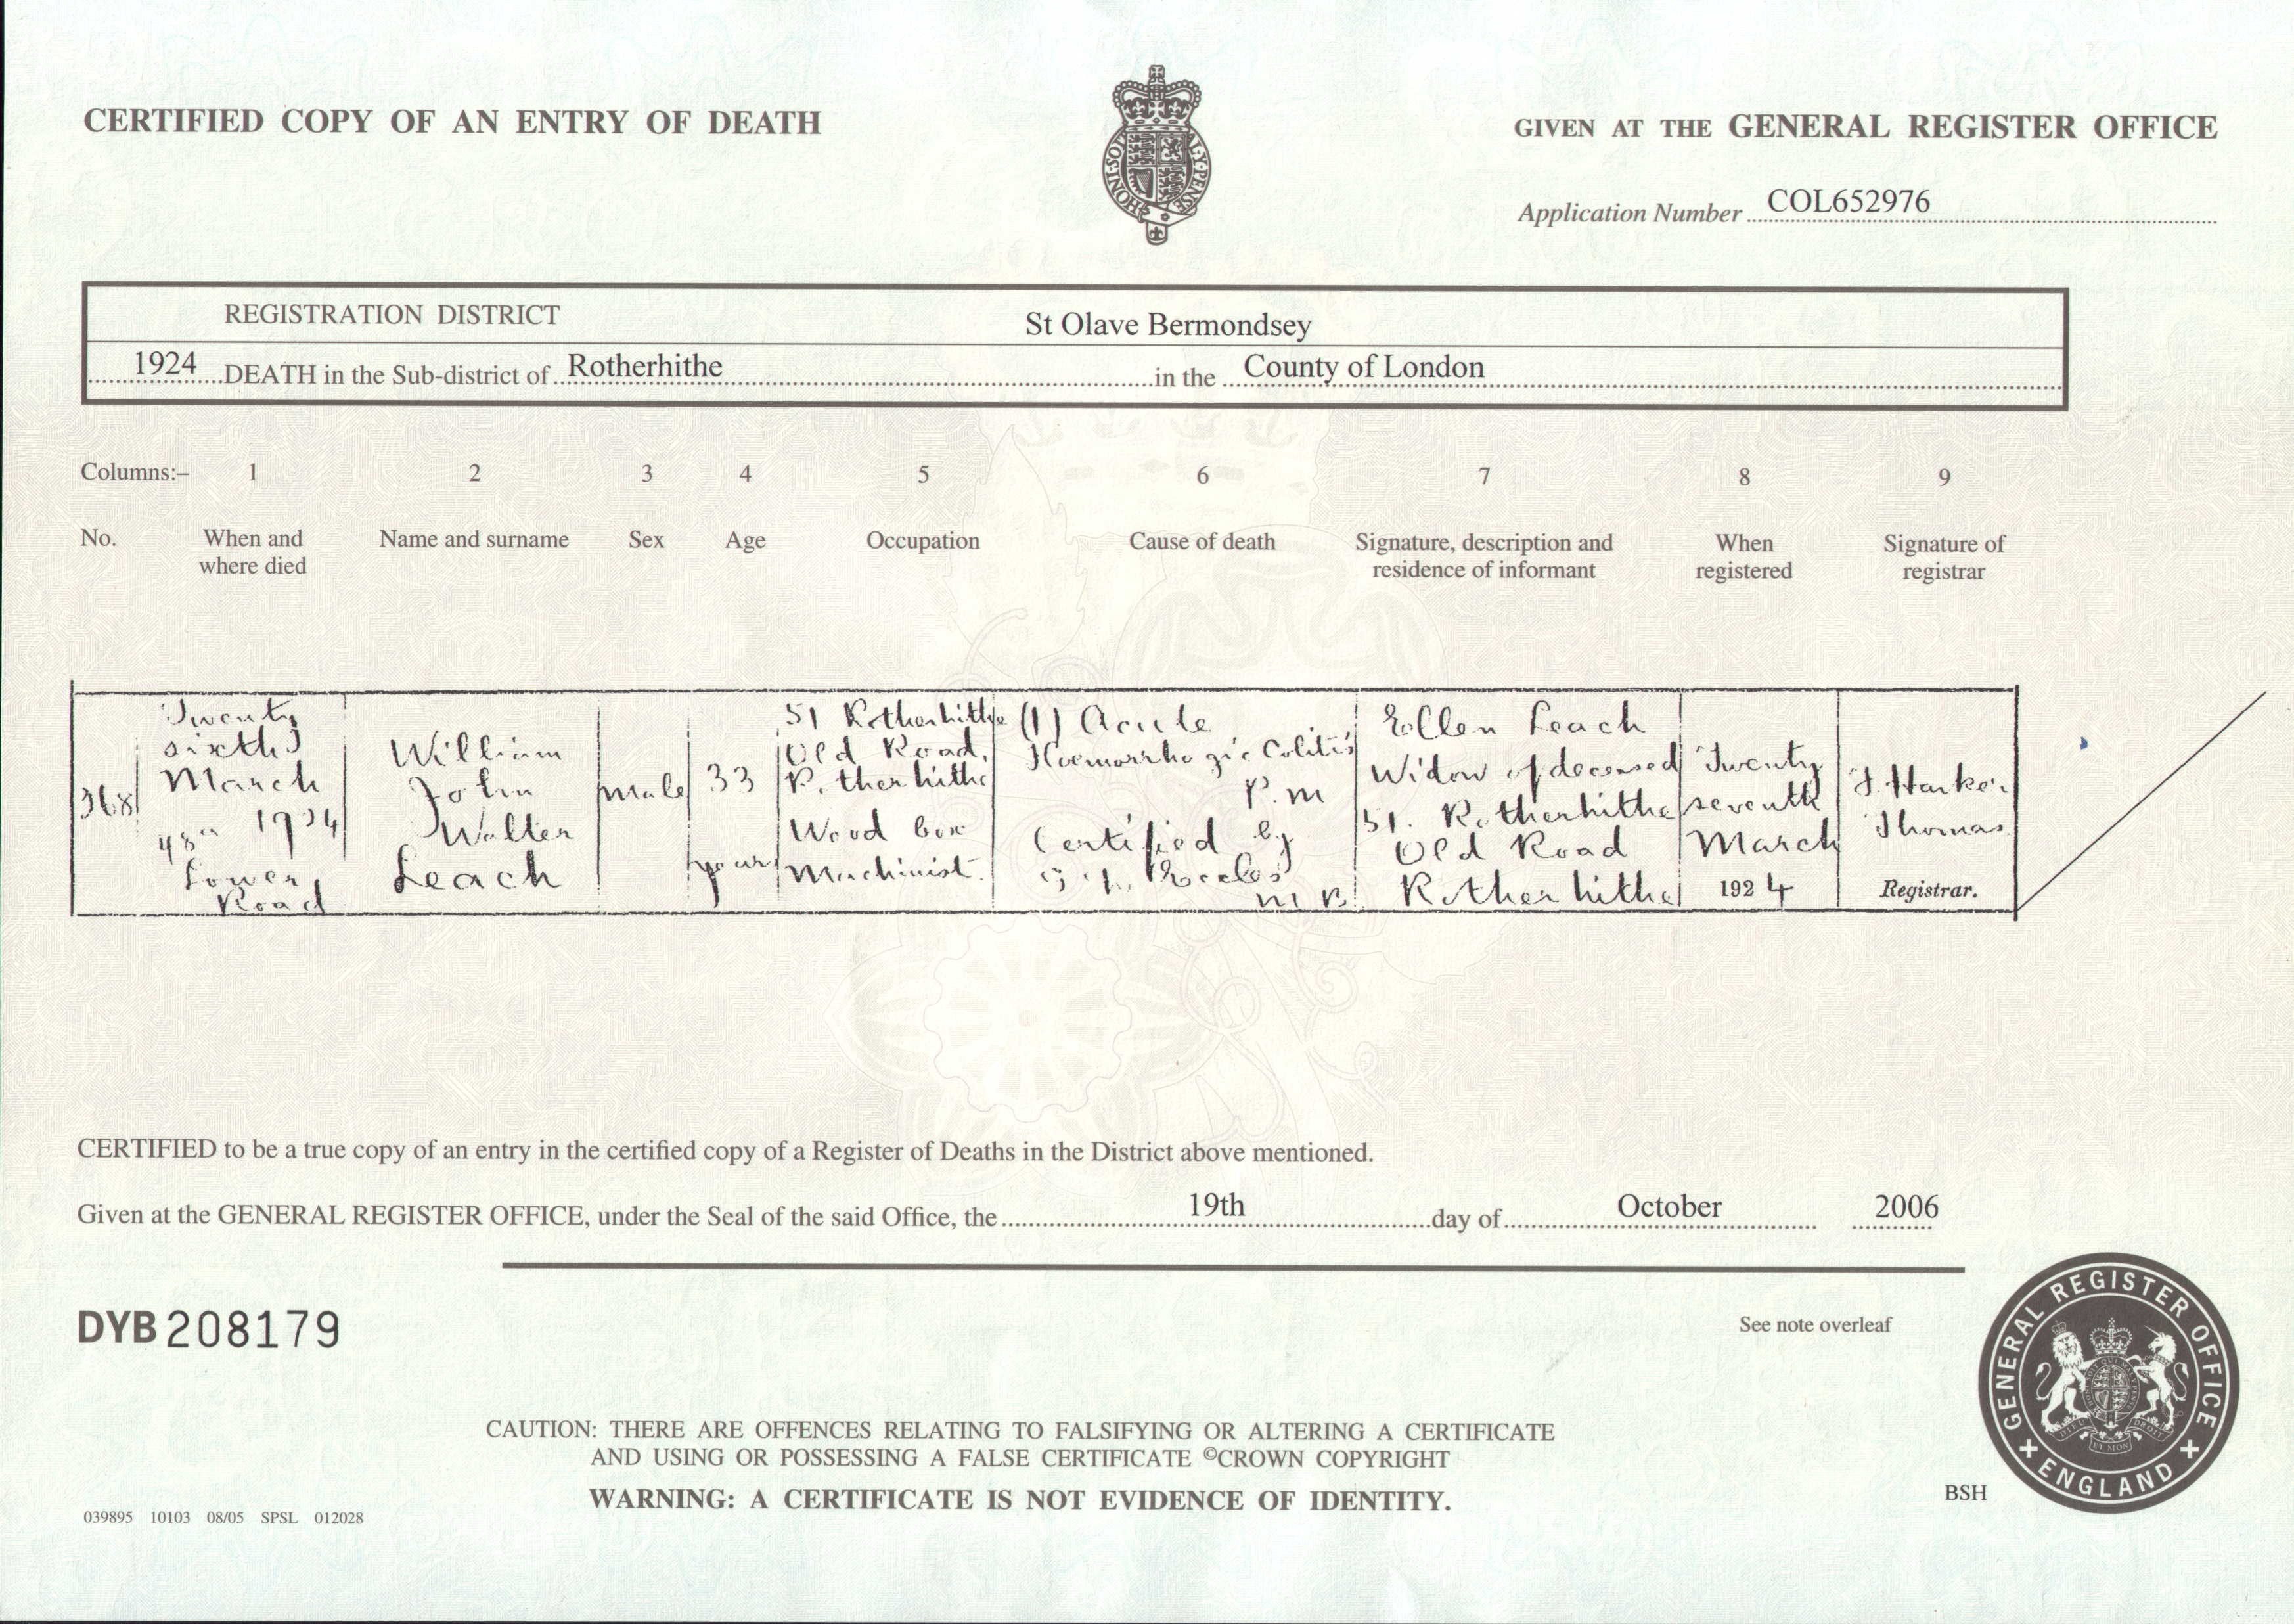 CERTIFIED COPY OF AN ENTRY OF DEATH
HONI·SOI AL·Y·PENSE
GIVEN AT THE GENERAL REGISTER OFFICE
Application Number COL652976
REGISTRATION DISTRICT St Olave Bermondsey
1924 DEATH in the Sub-district of Rotherhithe in the County of London
Columns:– 1 2 3 4 5 6 7 8 9
No. When and where died Name and surname Sex Age Occupation Cause of death Signature, description and residence of informant When registered Signature of registrar
368
Twenty
sixth
March
1924
Lower
Road
William
John
Walter
Leach
male
33
years
51 Rotherhithe
Old Road,
Rotherhithe
Wood box
Machinist.
(1) Acute
Haemorrhagic Colitis
P.m
Certified by
Eccles
M B
Ellen Leach
Widow of deceased
51. Rotherhithe
Old Road
Rotherhithe
Twenty
seventh
March
1924
Thomas
Registrar.
CERTIFIED to be a true copy of an entry in the certified copy of a Register of Deaths in the District above mentioned.
Given at the GENERAL REGISTER OFFICE, under the Seal of the said Office, the 19th day of October 2006
DYB 208179
See note overleaf
GENERAL REGISTER OFFICE
ENGLAND
CAUTION: THERE ARE OFFENCES RELATING TO FALSIFYING OR ALTERING A CERTIFICATE
AND USING OR POSSESSING A FALSE CERTIFICATE ©CROWN COPYRIGHT
WARNING: A CERTIFICATE IS NOT EVIDENCE OF IDENTITY.
BSH
039895 10103 08/05 SPSL 012028